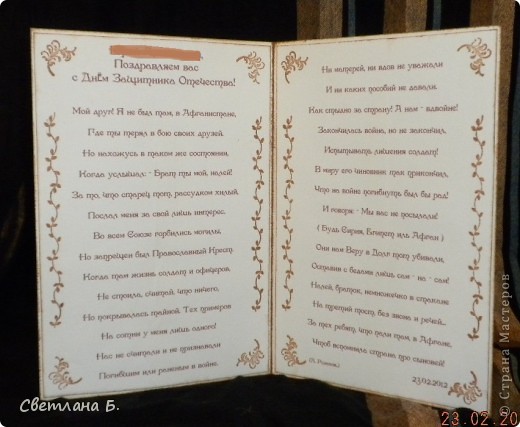 Поздравляем вас
с Днём Защитника Отечества!
Мой друг! Я не был там, в Афганистане,
Где ты терял в бою своих друзей.
Но нахожусь в таком же состоянии,
Когда услышал: - Брат ты мой, налей!
За то, что старец тот, рассудком хилый,
Послал меня за свой лишь интерес.
Во всем Союзе горбились могилы,
Но запрещен был Православный Крест.
Когда там жизнь солдат и офицеров,
Не стоила, считай, что ничего,
Но покрывалась тайной. Тех примеров
На сотни у меня лишь одного!
Нас не считали и не признавали
Погибшим или раненым в войне.
На матерей, ни вдов не уважали
И им никаких пособий не давали.
Как стыдно за страну! А нам - вдвойне!
Закончилась война, но не закончил,
Испытывать лишения солдат!
В миру его чиновник так прикончил,
Что на войне погибнуть был бы рад!
И говоря: - Мы вас не посылали!
( Будь Сирия, Египет иль Афган )
Они нам Веру в Долг тот убивали,
Оставив с бедами лишь сам - на - сам!
Налей, браток, немножечко в стакане
На третий тост, без звона и речей...
За тех ребят, что пали там, в Афгане,
Чтоб вспомнила страна про сыновей!
23.02.2012
Светлана Б.
23.02.20
© Страна Мастеров